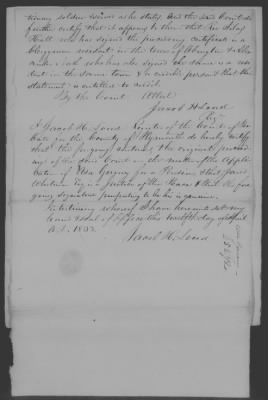 tionary soldier as she states and the said Court do
further certify that it appears to them that
Hall who has signed the preceding certificate is a
Clergyman resident in the town of Abington & 
who has also signed the same is a resi
dent in the same town & is credible person & that the
statement is entitled to credit.
By the Court Attest
Jacob H Loud
I Jacob H. Loud Register of the Court of Pro
bate in the County of Plymouth do hereby certify
that the foregoing contains the original proceed
ings of the said Court in the matter of the applic
cation of for a Pension that Jared
Whitman Esq is a Justice of the Peace & that the fore
going signature purporting to be his is genuine.
In testimony whereof I have hereunto set my
hand & seal of office this twelfth day of April
A.D. 1852.
Jacob H. Loud